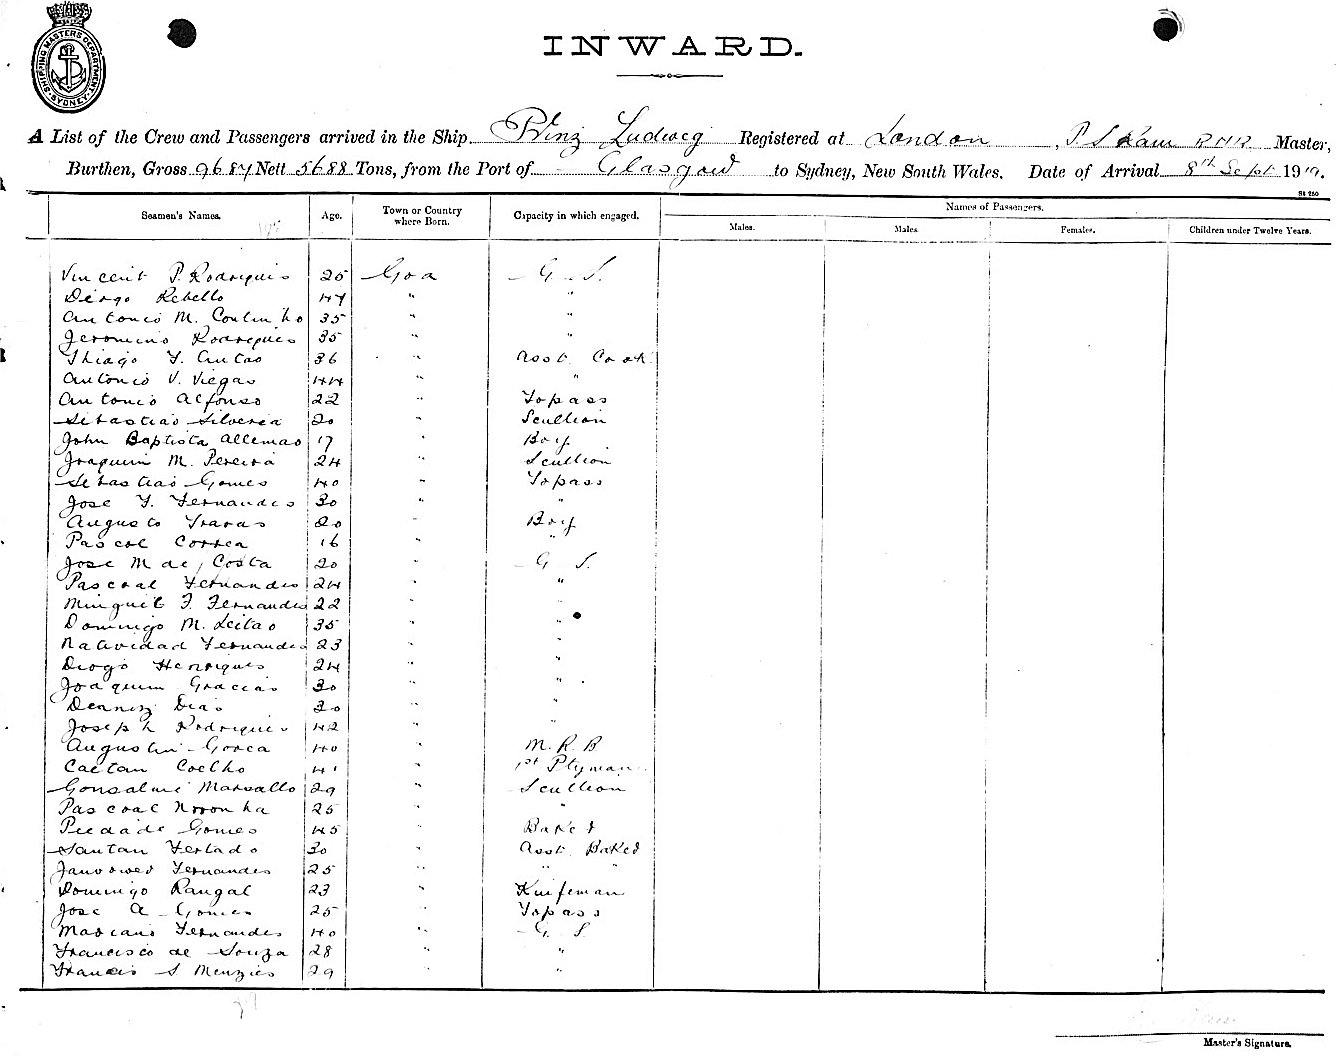 SHIPPING MASTERS DEPARTMENT SYDNEY
INWARD.
A List of the Crew and Passengers arrived in the Ship Prinz Ludwig Registered at London, P. S. RNR Master,
Burthen, Gross 9687 Nett 5688 Tons, from the Port of Glasgow to Sydney, New South Wales. Date of Arrival 8th Sept 1919.
Seamen's Names. Age. Town or Country where Born. Capacity in which engaged. Names of Passengers.
Males. Males. Females. Children under Twelve Years.
Vincent P. Rodriguis 25 Goa G. S.
Diogo Rebello 47 " "
Antonio M. Coutinho 35 " "
Jeromino Rodriguis 35 " "
Thiago F. Antao 36 " Asst. Cook
Antonio V. Viegas 44 " "
Antonio Alfonso 22 " Topass
Sebastiao Silveria 20 " Scullion
John Baptista Allemao 17 " Boy
Joaquim M. Pereira 24 " Scullion
Sebastiao Gomes 40 " Topass
Jose F. Fernandes 30 " "
Augusto Travas 20 " Boy
Pascol Correa 16 " "
Jose M de Costa 20 " G. S.
Pascoal Fernandes 24 " "
Minguel F. Fernandes 22 " "
Domingo M. Leitao 35 " "
Natividad Fernandes 23 " "
Diogo Henriques 24 " "
Joaquim Gracias 30 " "
Dias 30 " "
Joseph Rodriguis 42 " "
Augustin 40 " M. R. B
Caetan Coelho 41 " 1st Ptyman
Gonsalvi Marsallo 29 " Scullion
Pascoal Noronha 25 " "
Piedade Gomes 45 " Baker
Santan Fertado 30 " Asst. Baker
Fernandes 25 " " "
Domingo Rangal 23 " Knifeman
Jose A Gomes 25 " Topass
Marcano Fernandes 40 " G. S.
Francisco de Souza 28 " "
Francis S Menzies 29 " "
Master's Signature.